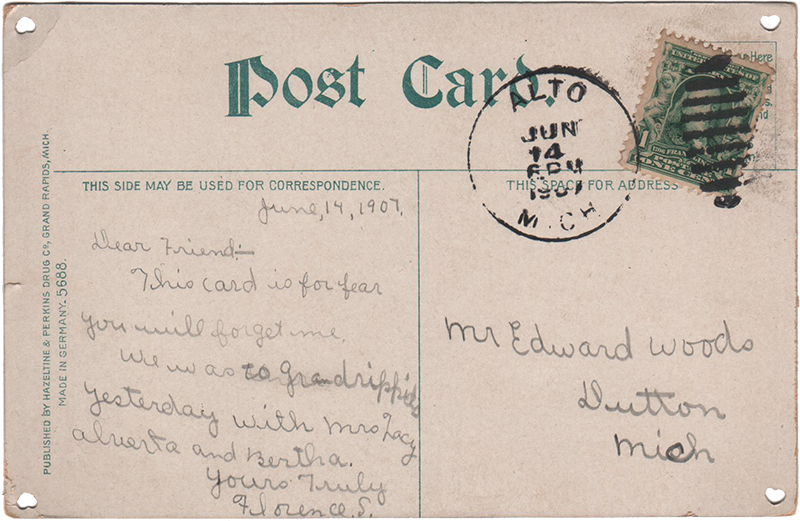 Post Card.
Here
ALTO
JUN
14
6 PM
1907
MICH
1
THIS SIDE MAY BE USED FOR CORRESPONDENCE.
THIS SPACE FOR ADDRESS
June, 14, 1907.
Dear Friend:—
This card is for fear
you will forget me.
We was to grandrippids
yesterday with Mrs Lacy
alverta and Bertha.
Yours Truly
Florence. S.
Mr Edward Woods
Dutton
Mich
PUBLISHED BY HAZELTINE & PERKINS DRUG CO, GRAND RAPIDS, MICH.
MADE IN GERMANY. 5688.